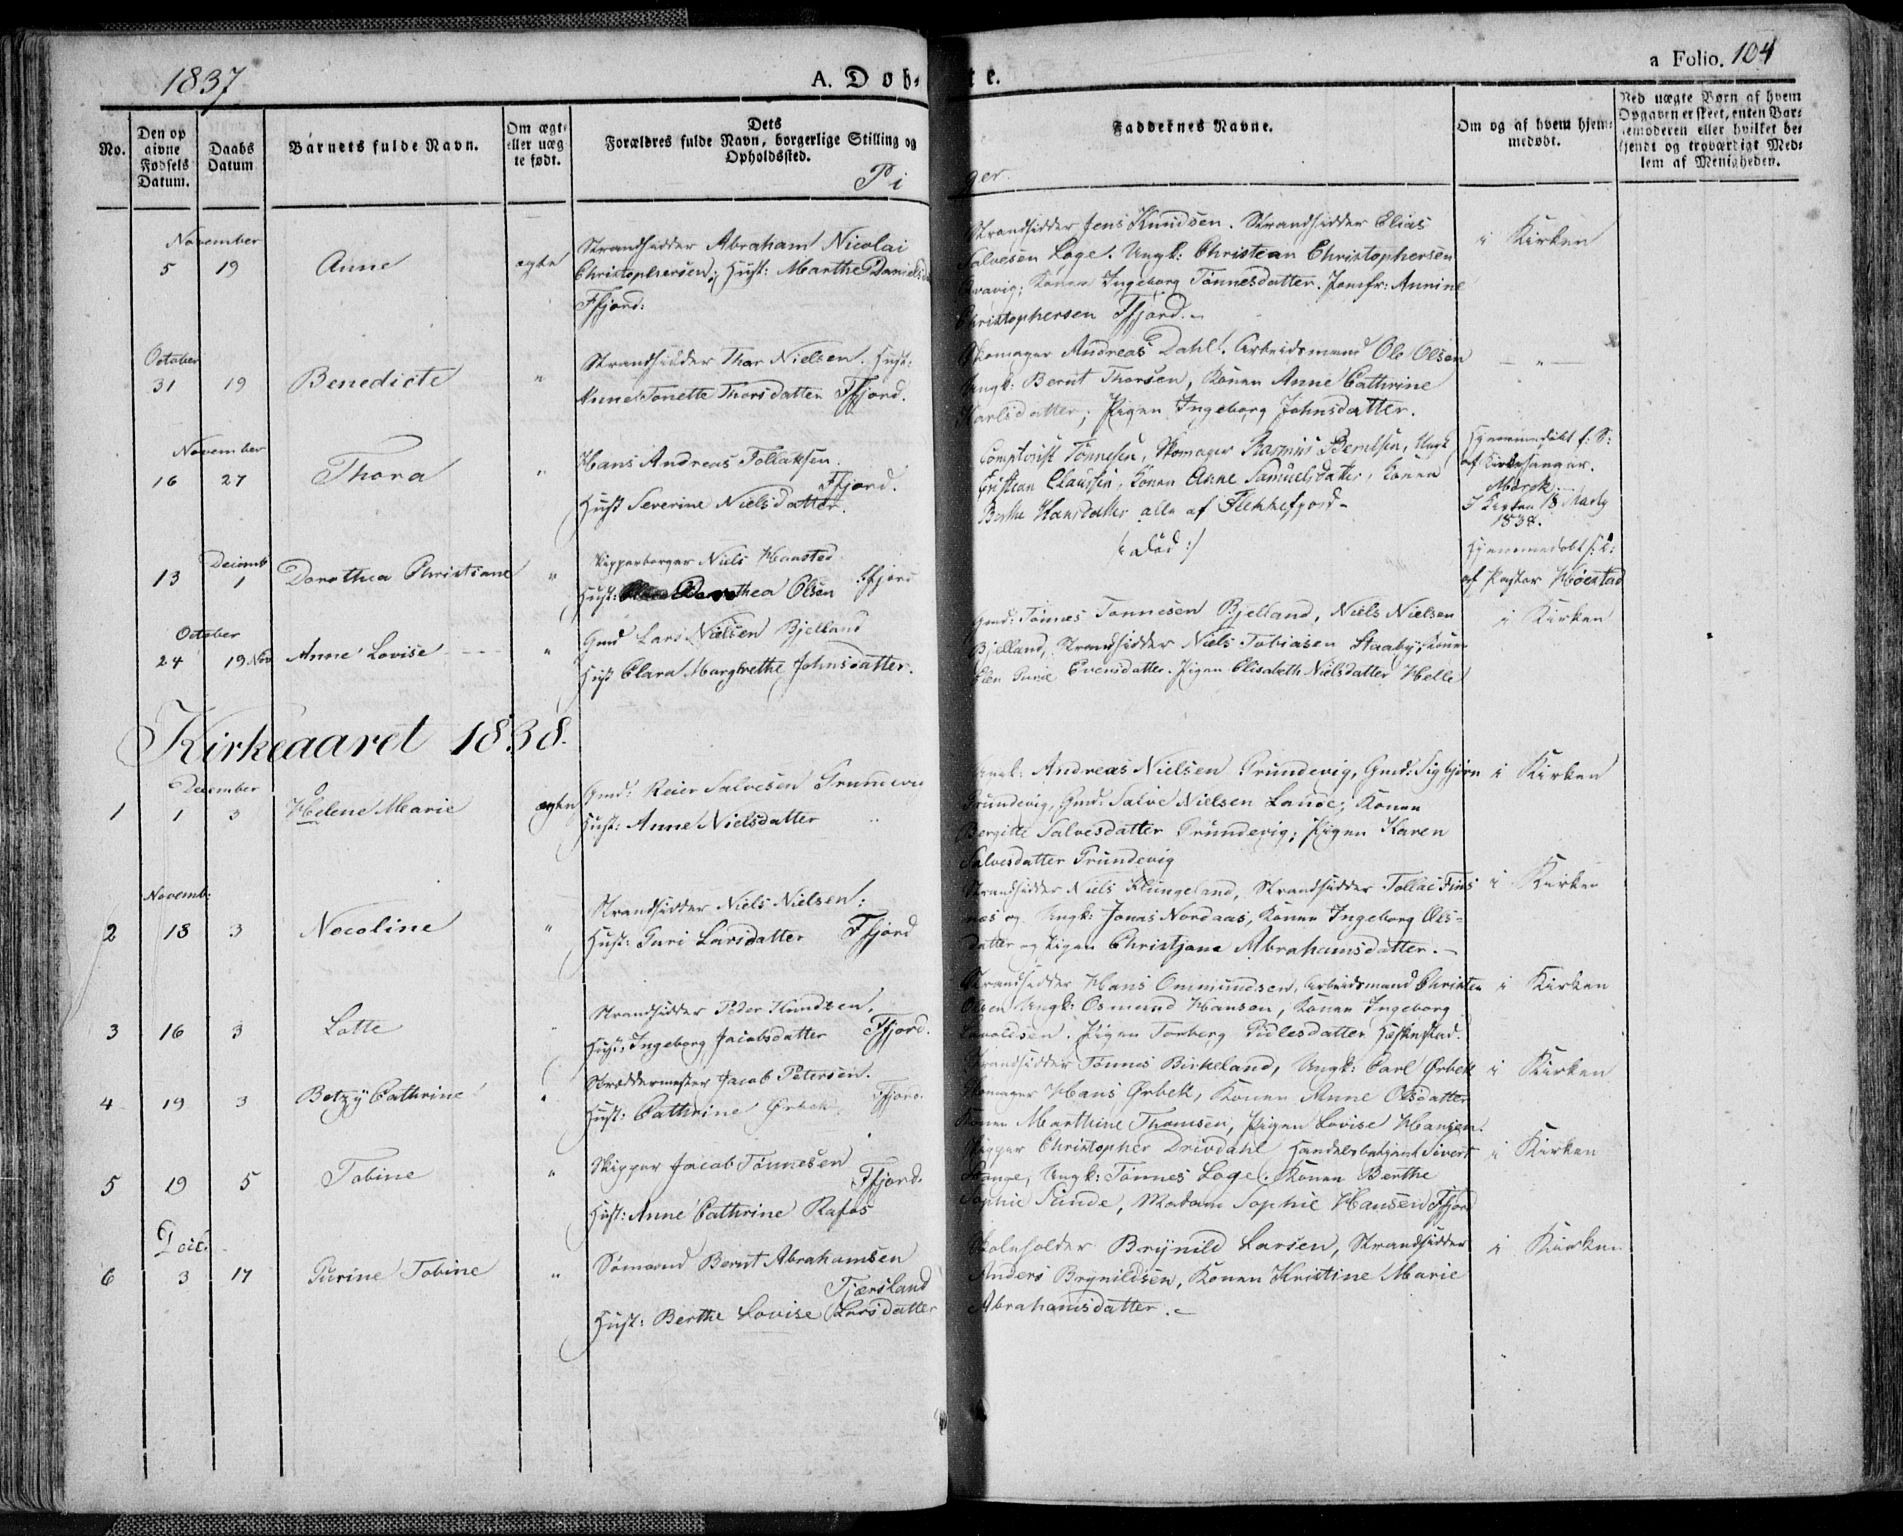 1837
A. Døb-
te.
a Folio. 104
No.
Den op
givne
Fødsels
Datum.
Daabs
Datum
Barnets fulde Navn.
Om ægt-
eller uæg
te født.
Dets
Forældres fulde Navn, borgerlige Stilling og
Opholdssted.
Faddernes Navne.
Om og af hvem hjem-
medøbt.
Ved uægte Børn af hvem
Opgaven er skeet, enten Bar-
nemoderen eller hvilket be-
kjendt og troværdigt Med-
lem af Menigheden.
Pi
ger.
November
5 19 Anne ægte
Strandsidder Abraham Nicolai
Christophersen; Hust: Marthe Daniels
Ffjord:
Strandsidder Jens Knudsen. Strandsidder Elias
Salvesen Loge. Ungk: Christean Christophersen
Konen Ingeborg Tønnesdatter. Jomfr: Annine
Christophersen Ffjord.
i Kirken
October
31 19 Benedicte "
Strandsidder Thor Nielsen. Hust:
Anne Tonette Thorsdatter Ffjord.
Skomager Andreas Dahl. Arbeidsmand Ole Olsen
Ungk: Bernt Thorsen, Konen Anne Cathrine
Karlsdatter; Pigen Ingeborg Johnsdatter.
— " —
November
16 27 Thora "
Hans Andreas Tollaksen.
Ffjord.
Hust Severine Nielsdatter.
Comptorist Tønnesen, Skomager Rasmus Berntsen, Ungk
Cristean Claussen, Konen Anne Samuelsdatter, Konen
Berthe Hansdatter alle af Flekkefjord-
Hjemmedøbt f: S:
af Kirkesanger.
Mørck.
I Kirken 18 Marty
1838.
Decemb
13 1 Dorothea Christiane "
Skipperborger Niels Hansted
Hust: Dorothea Olsen Ffjord
/: død :/
Hjemmedøbt f: S:
af Pastor Høested
October
24 19 Nov Anne Lovise "
Gmd Lars Nielsen Bjelland
Hust Clara Margrethe Johnsdatter.
Gmd: Tønnes Tonnesen Bjelland, Niels Nielsen
Bjelland, Strandsidder Niels Tobiasen Staaby, Konen
Evensdatter. Pigen Elisabeth Nielsdatter Helle
i Kirken
Kirkeaaret 1838.
December
1 1 3 Helene Marie ægte
Gmd: Reier Salvesen Grundevig
Hust: Anne Nielsdatter
Ungk: Andreas Nielsen Grundevig, Gmd: Sigbjørn
Grundevig, Gmd: Salve Nielsen Konen
Bergitte Salvesdatter Grundevig; Pigen Karen
Salvesdatter Grundevig
i Kirken
Novemb:
2 18 3 Necoline "
Strandsidder Niels Nielsen:
Hust: Guri Larsdatter Ffjord
Strandsidder Niels Klungeland, Strandsidder Tollac Fins
næs og Ungk: Jonas Nordaas, Konen Ingeborg Ols-
datter og Pigen Christjane Abrahamsdatter.
i Kirken
3 16 3 Lotte
Strandsidder Peder Knudsen,
Hust: Ingeborg Jacobsdatter Ffjord.
Strandsidder Hans Ommundsen, Arbeidsmand Christen
Olsen Ungk: Osmund Hansen, Konen Ingeborg
Pigen Torberg
i Kirken
4 19 3 Betzy Cathrine "
Skreddermester Jacob Petersen.
Hust: Cathrine Ørbek. Ffjord.
Strandsidder Tønnes Birkeland, Ungk: Carl Ørbek
Skomager Hans Ørbek, Konen Anne Olsdatter
Konen Marthine Thomsen, Pigen Lovise Hansen.
i Kirken
5 19 5 Tobine "
Skipper Jacob Tønnesen
Ffjord.
Hust: Anne Cathrine Rafos
Skipper Christopher Drivdahl Handelsbetjent Sivert
Stange, Ungk: Tønnes Loge. Konen Berthe
Sophie Sunde, Madam Sophie Hansen Ffjord
i Kirken
Dec.
6 3 17 Gurine Tobine "
Sømand Bernt Abrahamsen
Tjærsland
Hust: Berthe Lovise Larsdatter
Skoleholder Brynild Larsen, Strandsidder
Anders Brynildsen, Konen Kristine Marie
Abrahamsdatter.
i Kirken